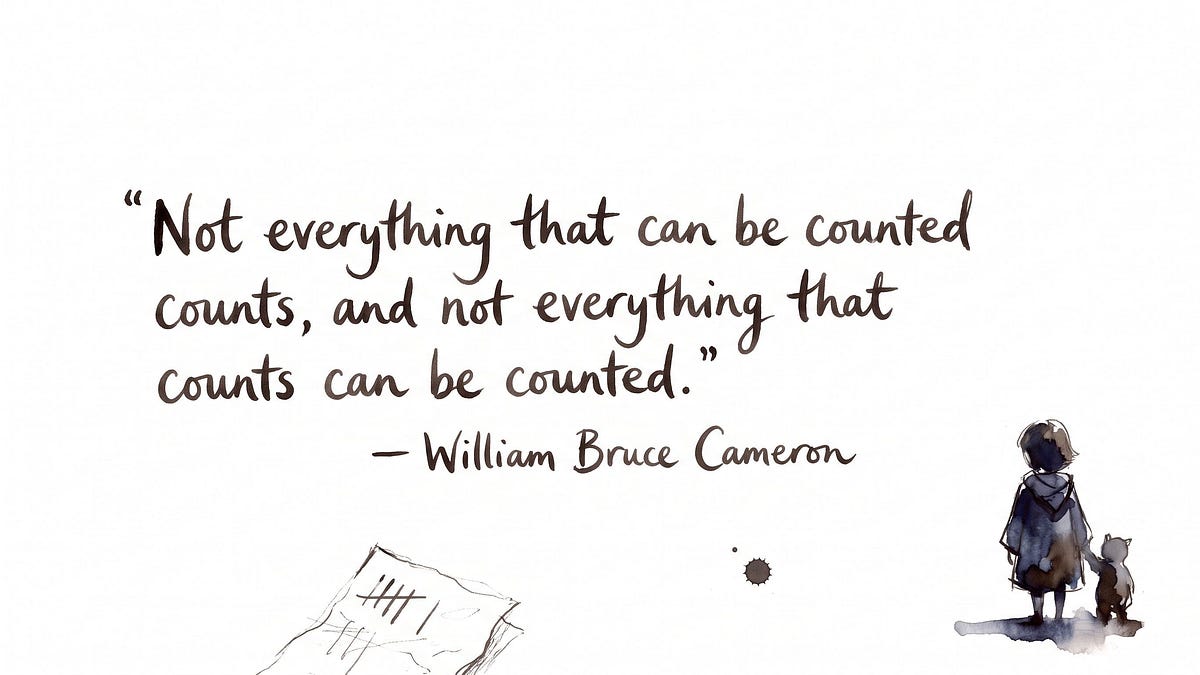 “Not everything that can be counted
counts, and not everything that
counts can be counted.”
— William Bruce Cameron